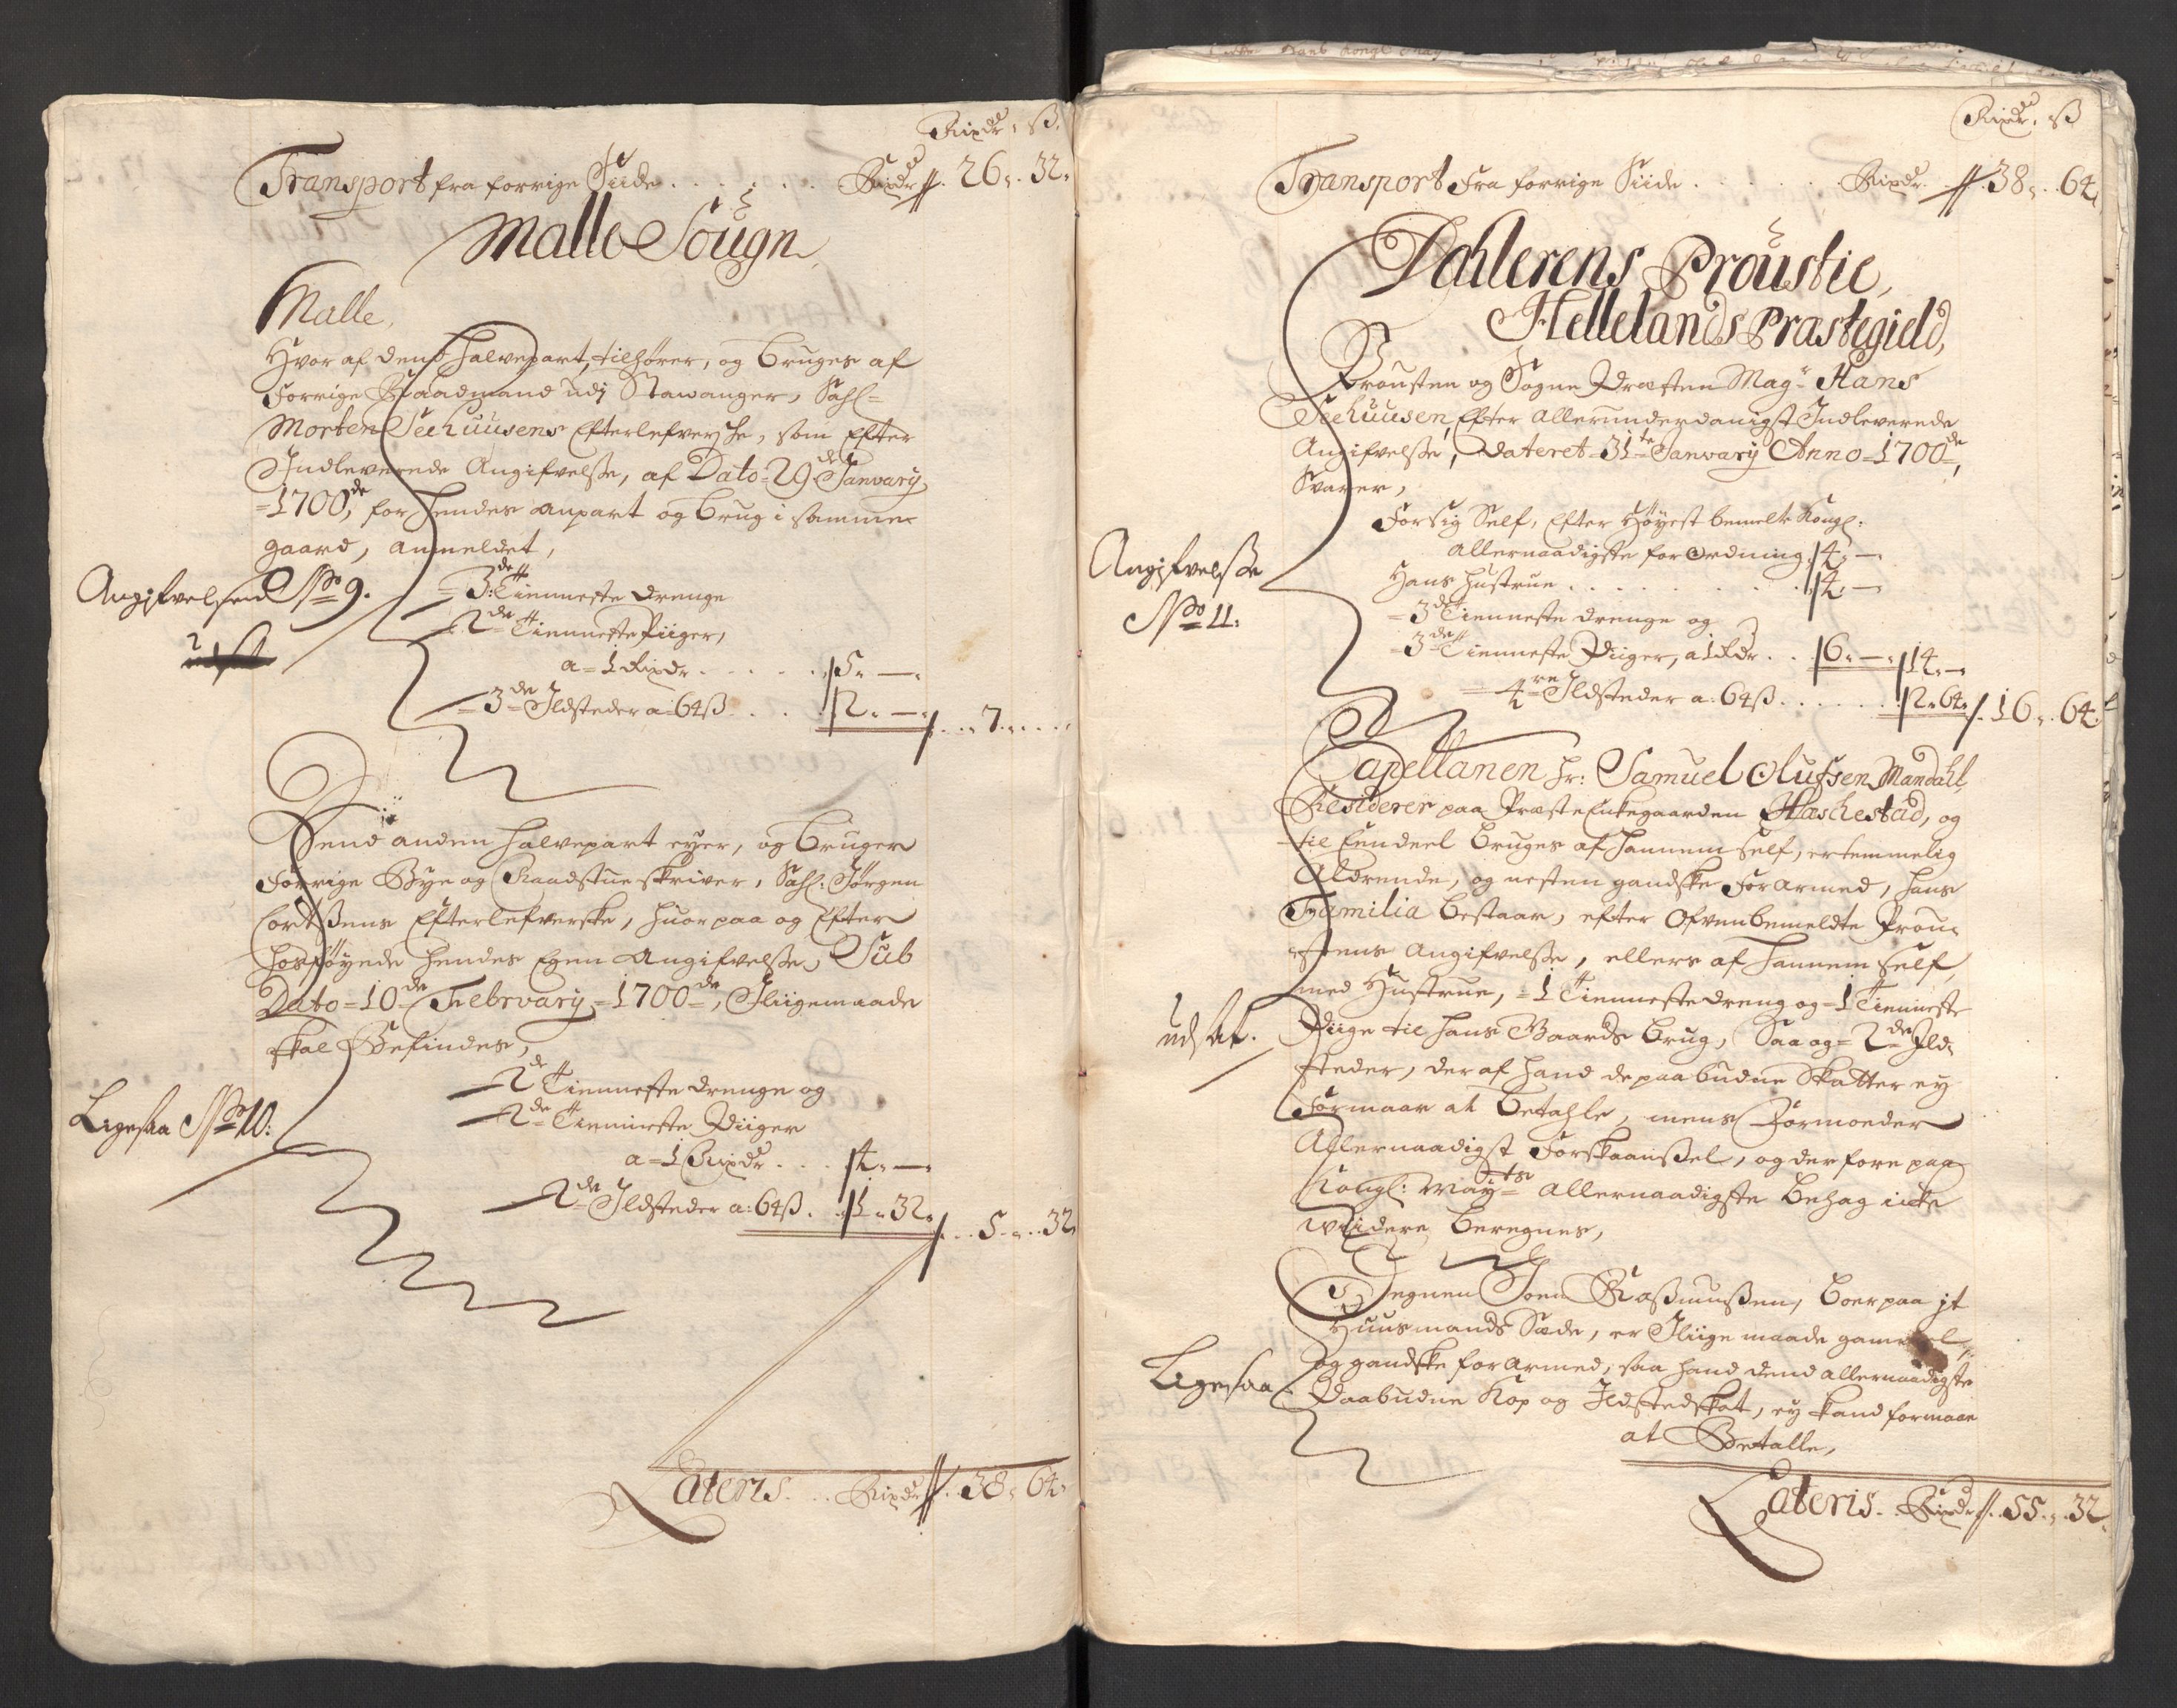 Rixdr, ß.
Transport fra forrige Siide . . . . . . Rixdr 26. 32.
Malle Sougn
Malle,
Hvor af dend halvepart, tilhører, og bruges af
forrige Raadmand udj Stawanger, Sahl=
Morten Seehuusens Efterlefversche, som efter
Indleverede Angifvelsse, af Dato=29de January
=1700de, for hendes anpart og brug i samme
gaard, anmeldet,
Angifvelsen No 9.
=3de Tienneste drenge
=2de Tienneste Piiger,
a=1 Rixdr . . . . . 5. —.
=3de Ildsteder a: 64ß . . . . 2. —. . . 7. . . . .
Dend anden halvepart eyer, og bruger
forrige Bye og Raadstueskriver, Sahl: Jørgen
Cortßens Efterlefverske, huorpaa og Efter
hosføyede hendes Egen Angifvelsse, Sub
Dato=10de February=1700de, Iliigemaade
skal Befindes,
Ligesaa No 10:
=2de Tienneste drenge og
=2de Tienneste Piiger
a=1 Rixdr . . . 4. —.
=2de Ildsteder a: 64ß . . 1. 32. . . 5. . . 32
Lateris. . . Rixdr . 38. 64.
Rixdr. ß
Transport Fra forrige Siide . . . . . . Rixdr. 38. . 64.
Dahlerens Proustie,
Hellelands Præstegield,
Prousten og Sogne Præsten Magr Hans
Seehuusen, Efter allerunderdanigst Indleverede
Angifvelsse, Dateret=31te January Anno=1700de,
Svarer,
For sig Self, Efter Høyest bemelte Kongl:
allernaadigste forOrdning. 4. —.
Hans Hustrue . . . . . . . . 4. —.
Angifvelsse
No 11:
=3de Tienneste drenge og
=3de Tienneste Piiger, a 1 Rdr . . 6. —. 14. —.
=4re Ildsteder a: 64ß . . . . . . 2. 64. . 16. . 64.
Capellanen Hr: Samuel Olufssen Mandahl,
Residerer paa Præste Enkegaarden Hæschestad, og
til Eendeel bruges af hannem self, er temmelig
Aldrende, og nesten gandske Forarmed, hans
Familia bestaar, efter Ofvenbemeldte Prou-
stens Angifvelsse, ellers af hannem self,
med Hustrue, =1 Tienneste dreng og =1 Tienneste
Piige til hans Gaards brug, Saa og=2de Ild-
udsat.
steder, der af hand de paabudne Skatter ey
Formaar at betahle, mens Formoeder
Allernaadigst Forskaanßel, og derfore paa
Kongl: Mayts allernaadigste behag icke
widere beregnes,
Degnen Joen Raßmußen, boer paa it
Huusmands Sæde, er Iliige maade gammel,
og gandske forarmed, saa hand dend allernaadigste
Ligesaa
Paabudne Kop og Ildstedskat, ey kand formaae
at Betalle,
Lateris. . Rixdr . 55. . 32.